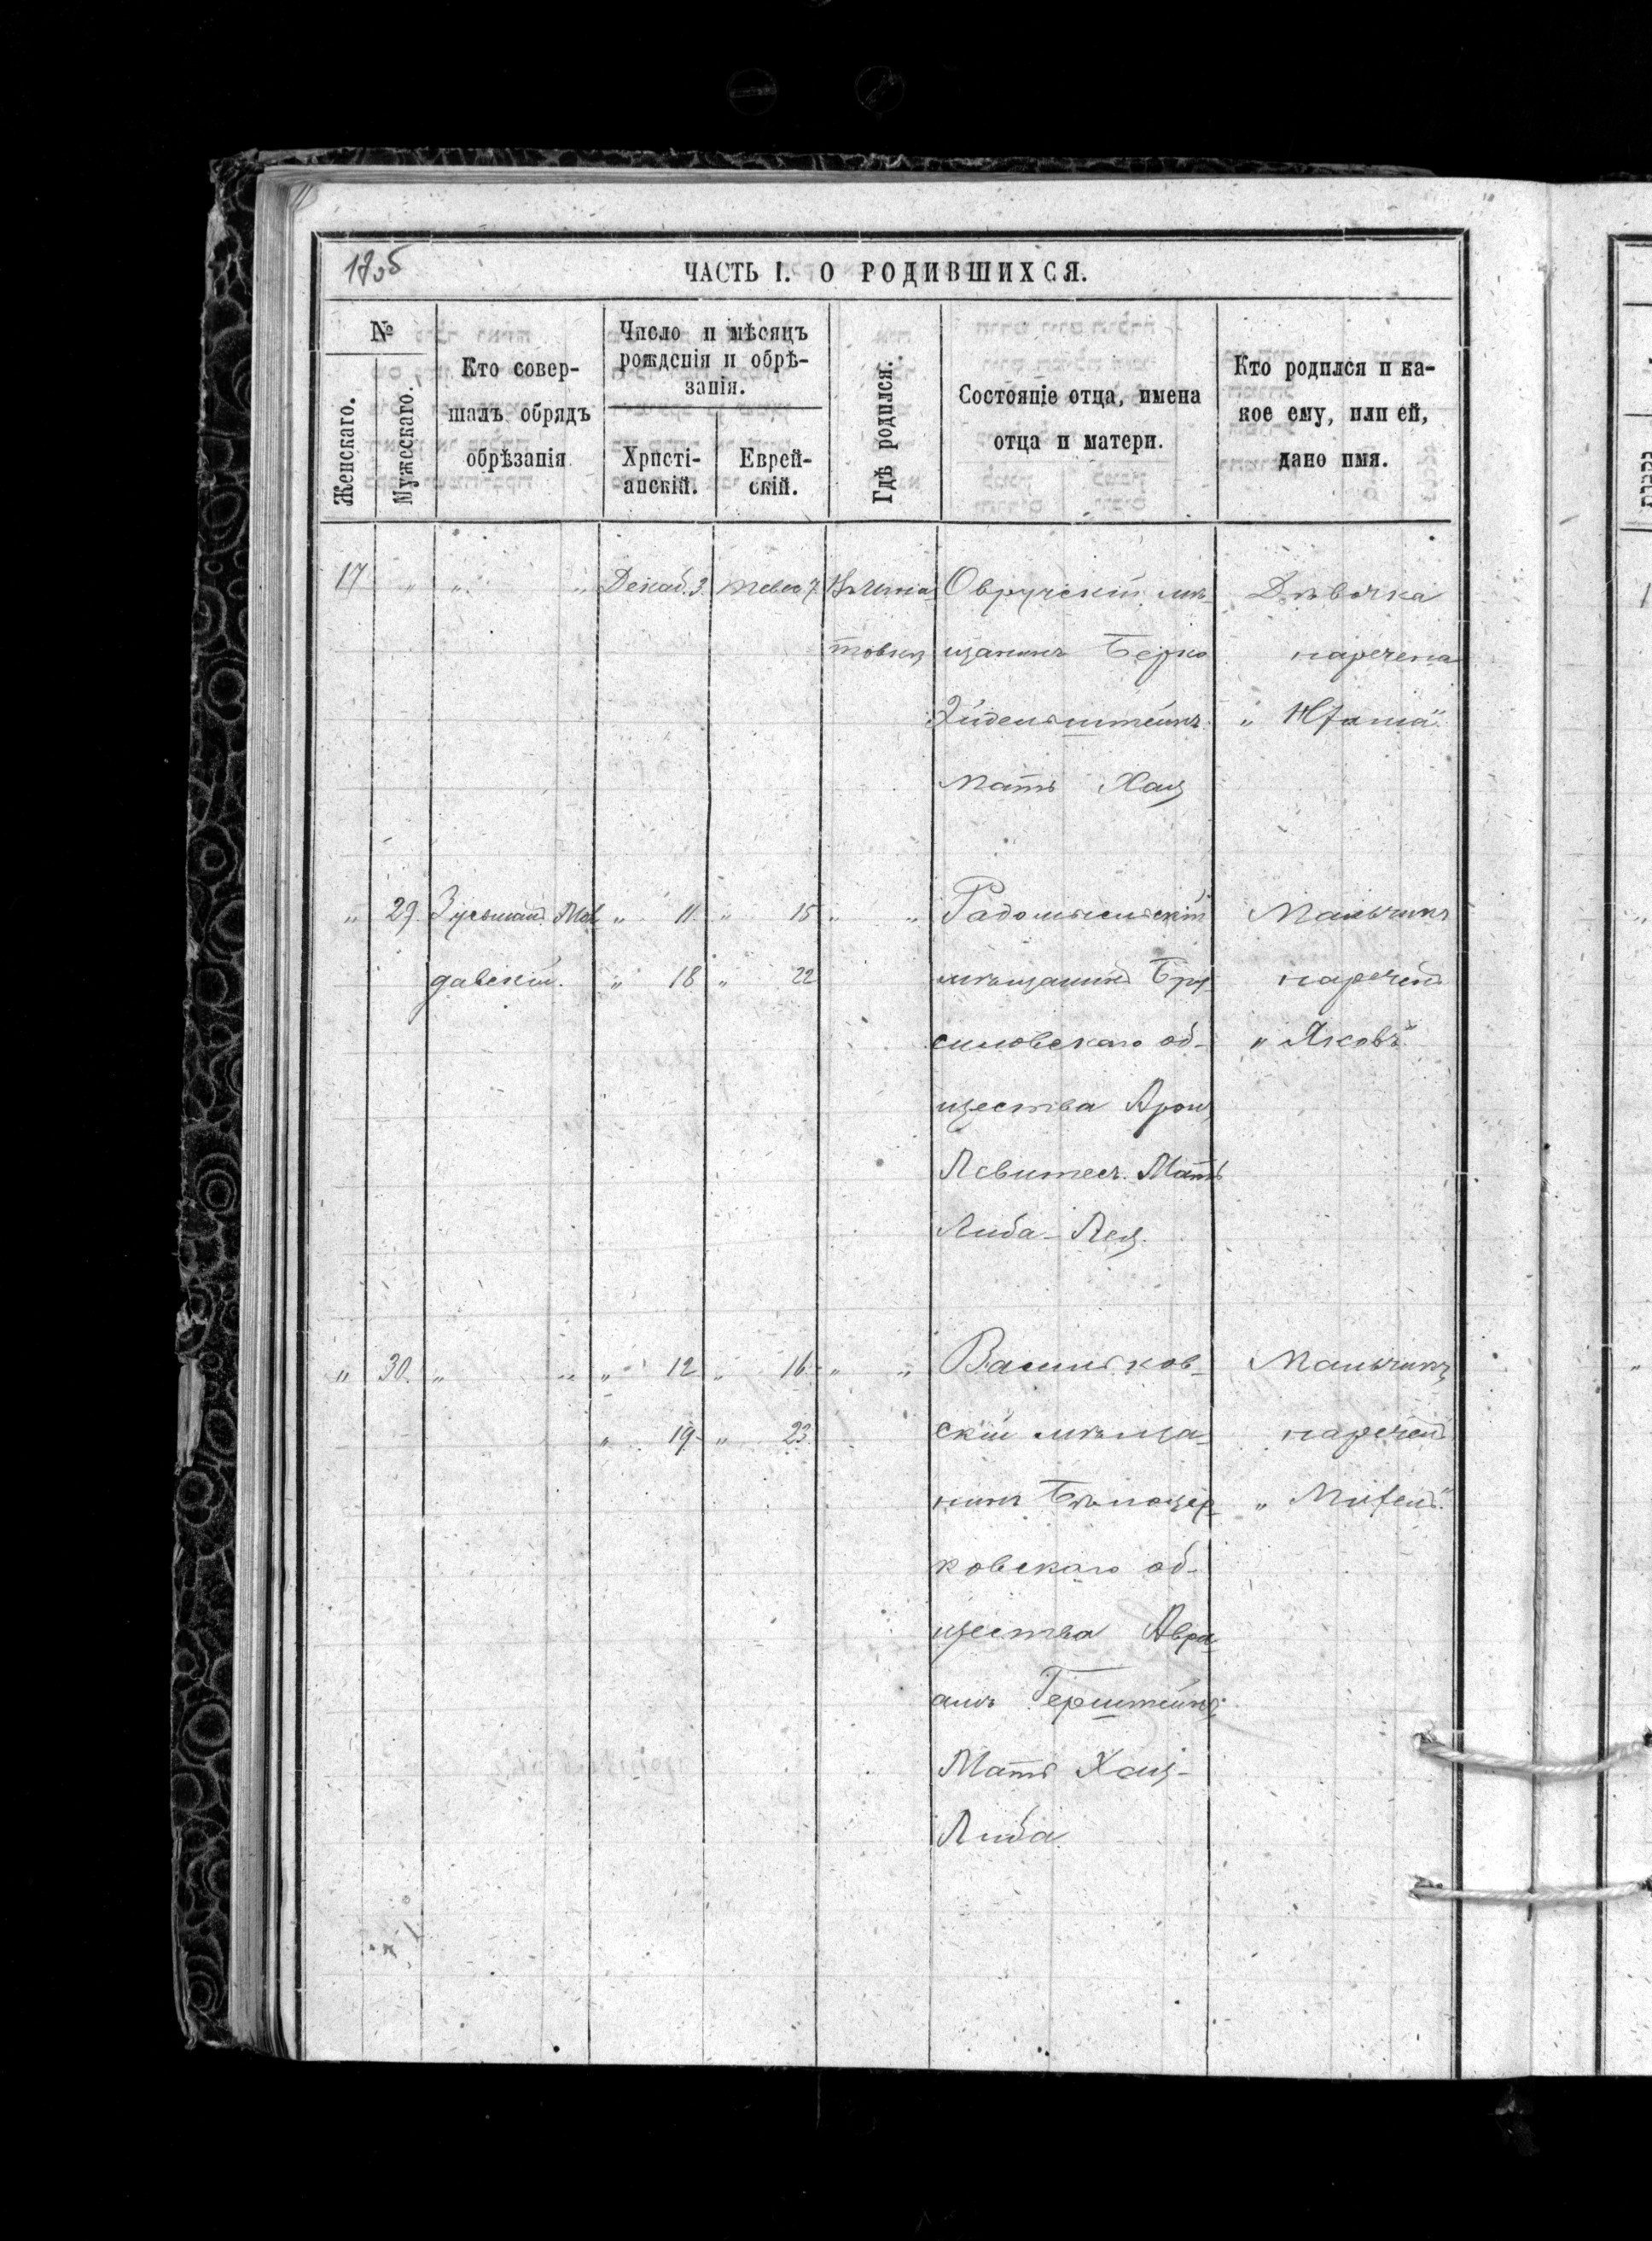 1705
ЧАСТЬ I. О РОДИВШИХСЯ.
№
Женскаго.
Мужескаго.
Кто совер-
шалъ обрядъ
обрѣзанія
Число и мѣсяцъ
рожденія и обрѣ-
занія.
Христі-
анскій.
Еврей-
скій.
Гдѣ родился.
Состояніе отца, имена
отца и матери.
Кто родился и ка-
кое ему, или ей,
дано имя.
17 " " " Декаб. 3. Тевес 7.
товкѣ
Овручскій мѣ-
щанинъ Берко
Эйдельштейнъ.
Мать Хая
Дѣвочка
наречена
" 29. Зусьманъ
давскій.
" 11. " 15 " "
" 18 " 22
Радомысльскій
мѣщанинъ Бру-
силовскаго об-
щества Аронъ
Левитесъ. Мать
Либа-Лея.
Мальчикъ
нареченъ
" Яковъ"
" 30. " " " 12 " 16 " "
" 19 " 23.
Васильков-
скій мѣща-
нинъ Бѣлоцер-
ковскаго об-
щества Авра-
амъ Герштейнъ.
Мать Хая-
Либа
Мальчикъ
нареченъ